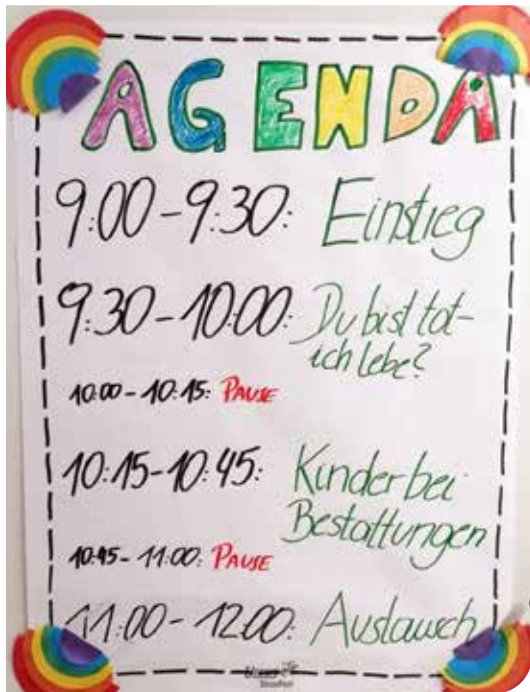 AGENDA
9:00-9:30: Einstieg
9:30-10:00: Du bist tot-
ich lebe?
10:00-10:15: PAUSE
10:15-10:45: Kinder bei
Bestattungen
10:45-11:00: PAUSE
11:00-12:00: Austausch